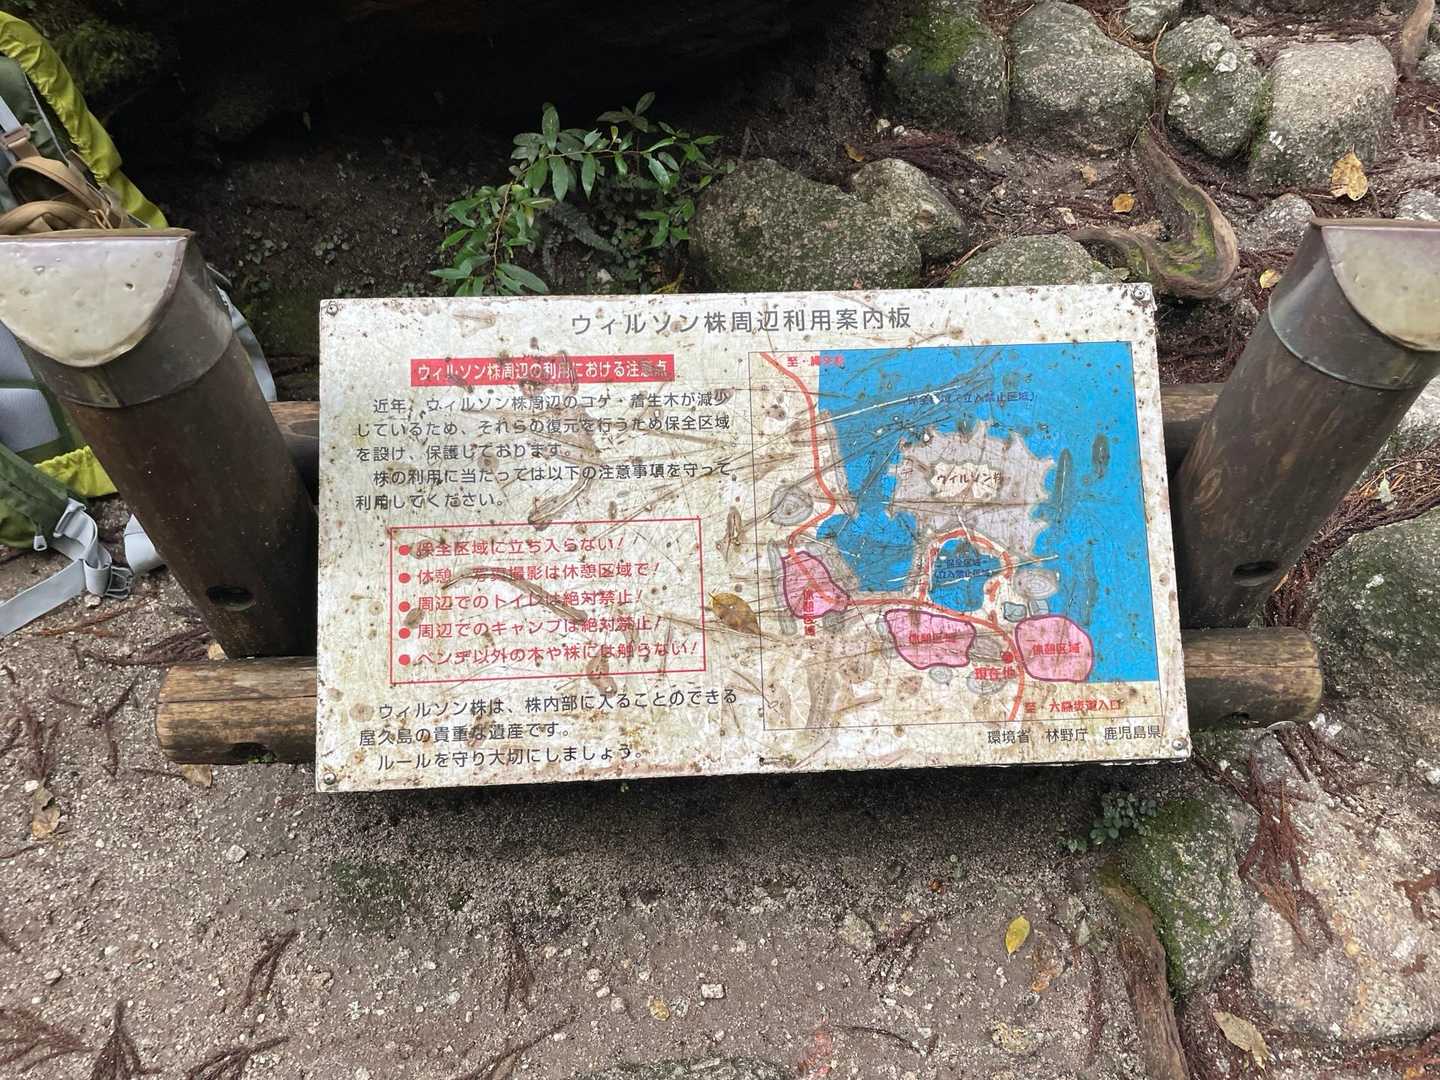 ウィルソン株周辺利用案内板
ウィルソン株周辺の利用における注意点
近年、ウィルソン株周辺のコケ・着生木が減少
しているため、それらの復元を行うため保全区域
を設け、保護しております。
株の利用に当たっては以下の注意事項を守って
利用してください。
●保全区域に立ち入らない！
●休憩・写真撮影は休憩区域で！
●周辺でのトイレは絶対禁止！
●周辺でのキャンプは絶対禁止！
●ベンチ以外の木や株には触らない！
ウィルソン株は、株内部に入ることのできる
屋久島の貴重な遺産です。
ルールを守り大切にしましょう。
至・縄文杉
立入禁止区域）
ウィルソン株
保全区域
立入禁止区域
休憩区域
休憩区域
休憩区域
現在地
至・大株歩道入口
環境省　林野庁　鹿児島県